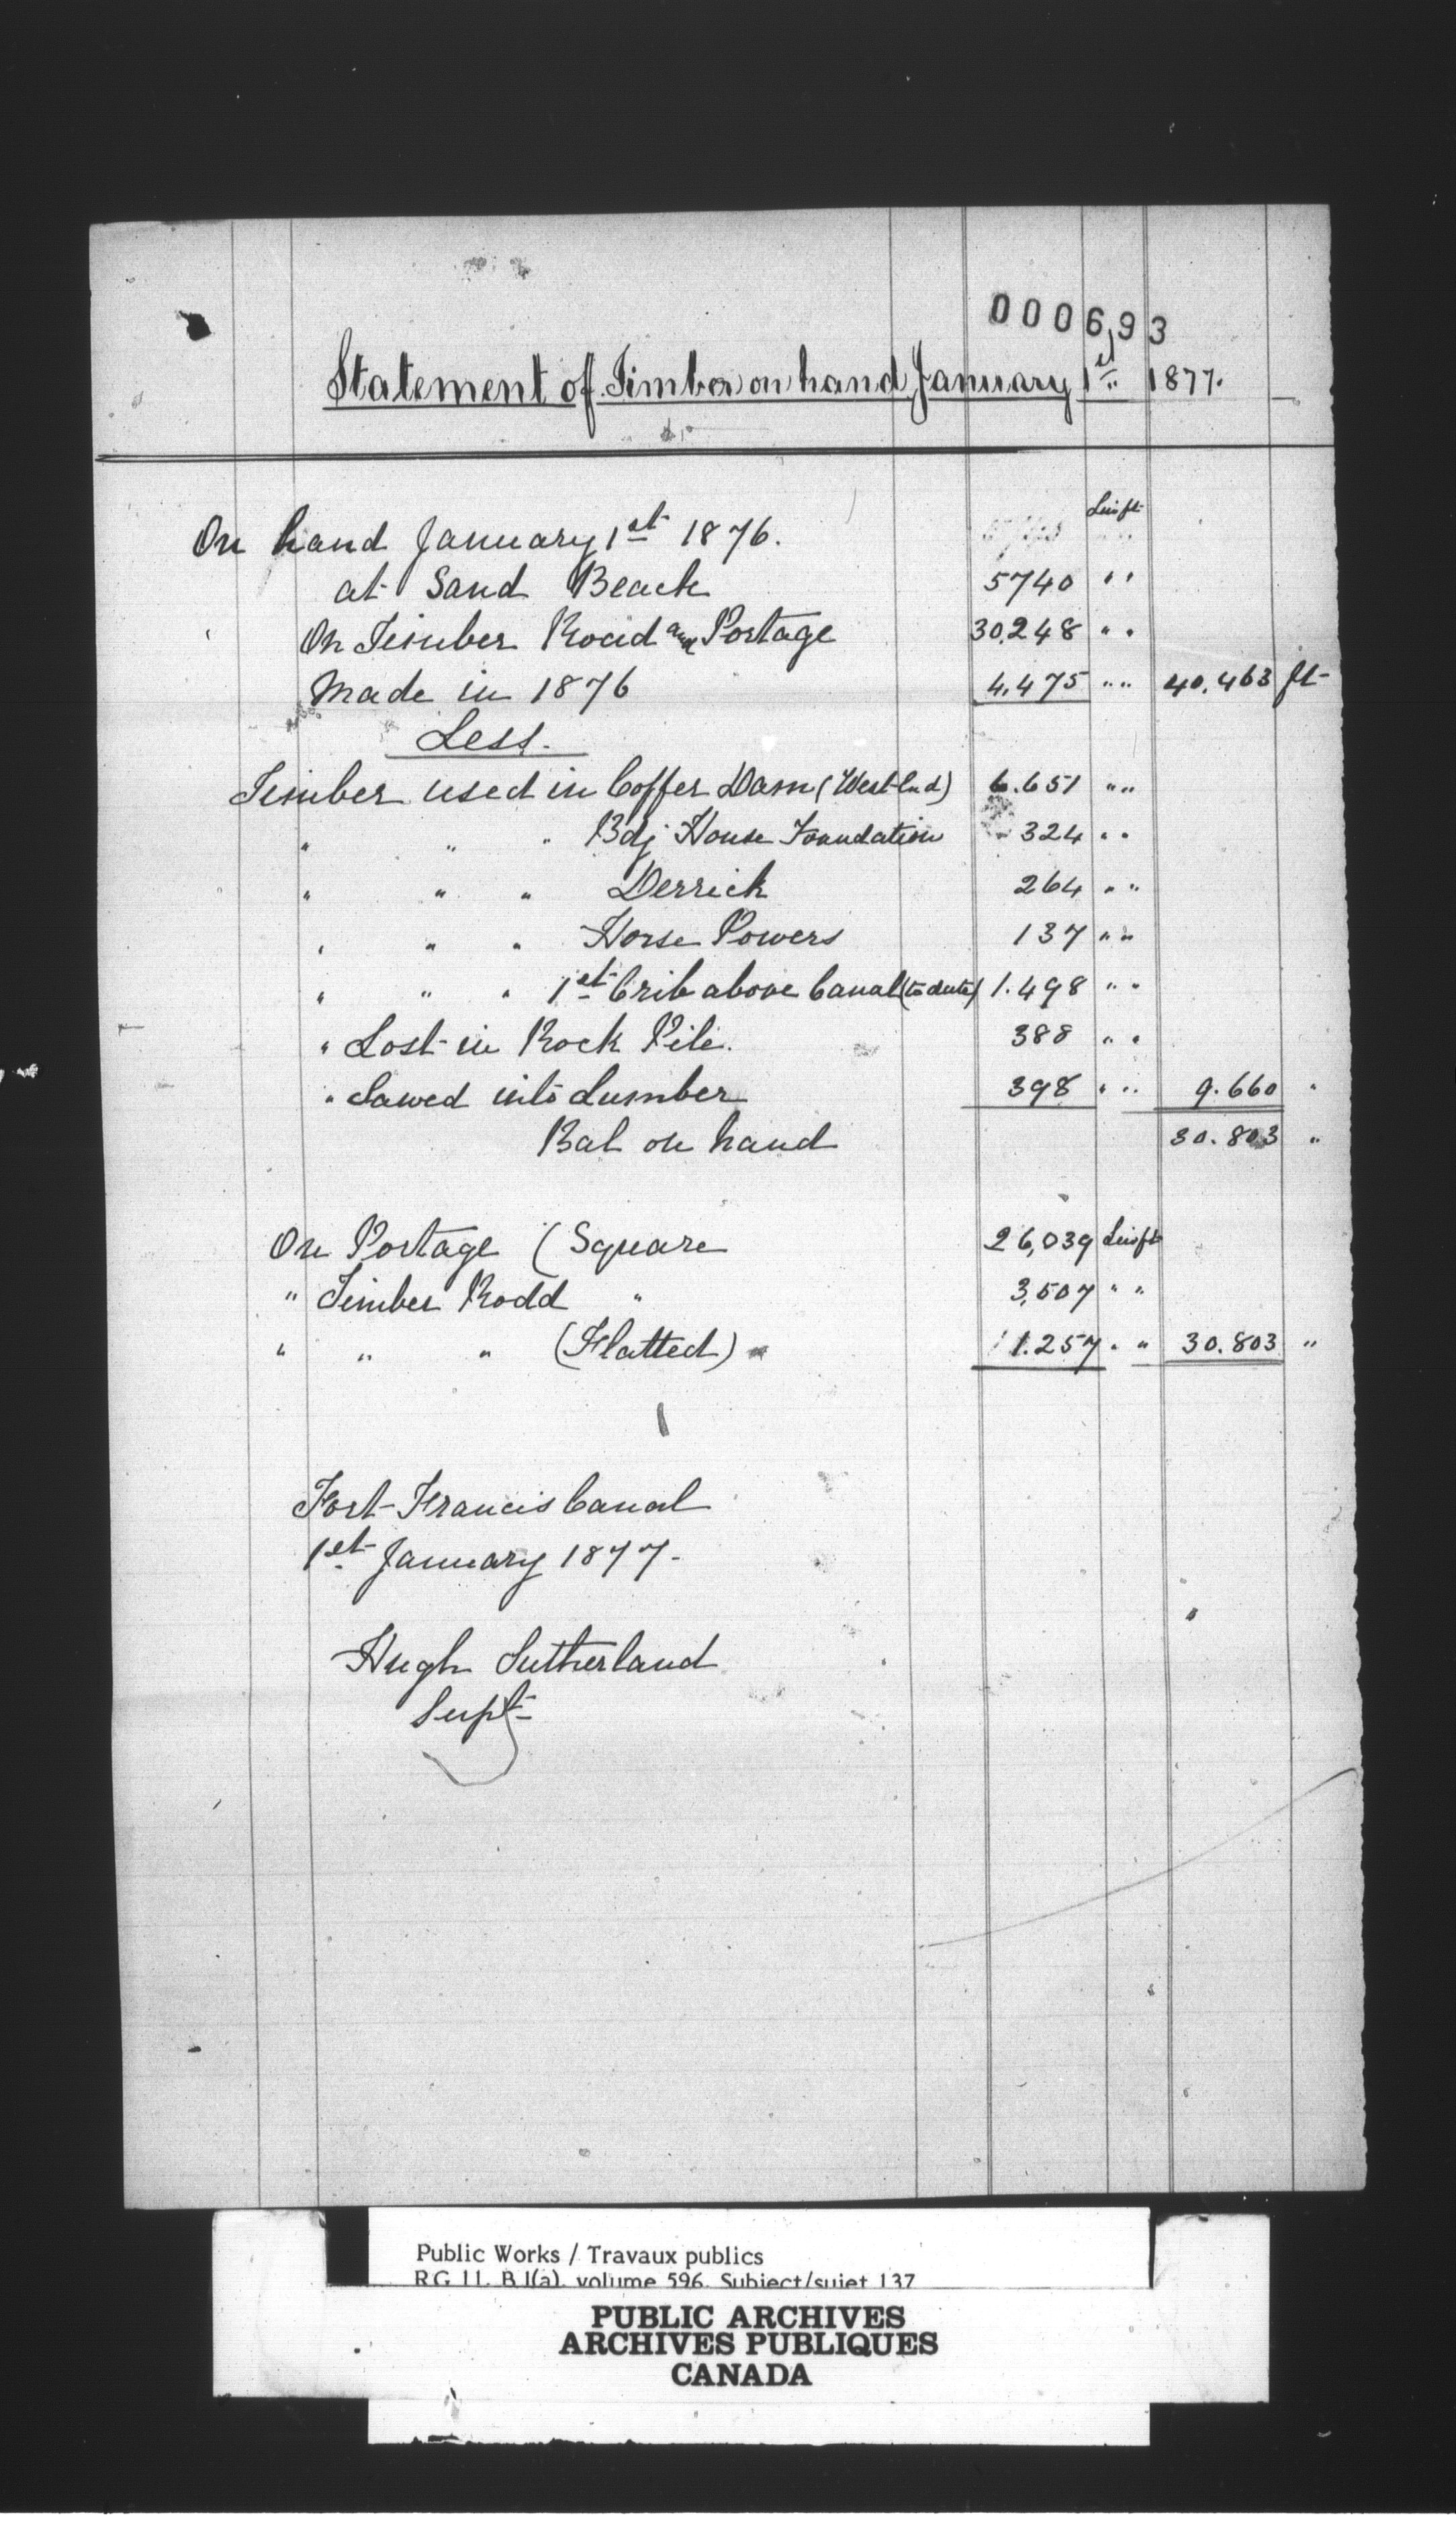 000693
Statement of Timber on hand January 1st 1877.
Lin ft
On hand January 1st 1876.
at Sand Beach 5740 " "
On Timber Road and Portage 30,248 " "
Made in 1876 4.475 " " 40.463 ft
Less.
Timber used in Coffer Dam (West End) 6.651 " "
" " " Bdg House Foundation 324 " "
" " " Derrick 264 " "
" " " Horse Powers 137 " "
" " " 1st Crib above Canal (to date) 1.498 " "
" Lost in Rock Pile. 388 " "
" Sawed into Lumber 398 " " 9.660 "
Bal on hand 30.803 "
On Portage (Square 26,039 Lin ft
" Timber Rodd " 3,507 " "
" " " (Flatted) " 1.257 " " 30.803 "
Fort Francis Canal
1st January 1877.
Hugh Sutherland
Supt
Public Works / Travaux publics
RG 11, B 1(a), volume 596, Subject/sujet 137
PUBLIC ARCHIVES
ARCHIVES PUBLIQUES
CANADA